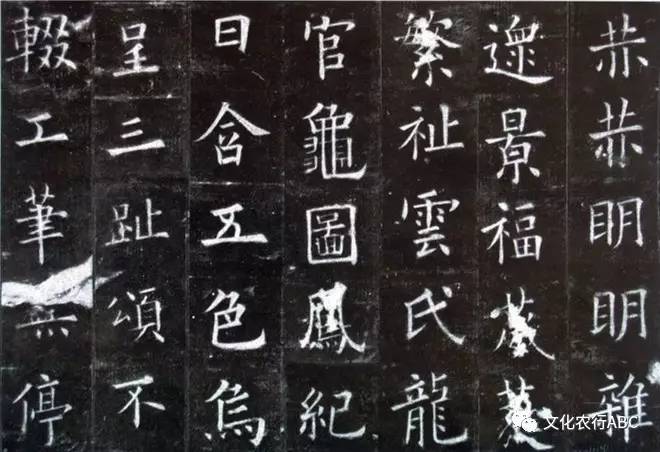 赫赫明明雜
遝景福葳蕤
繁祉雲氏龍
官龜圖鳳紀
日含五色烏
呈三趾頌不
輟工筆無停
文化农行ABC